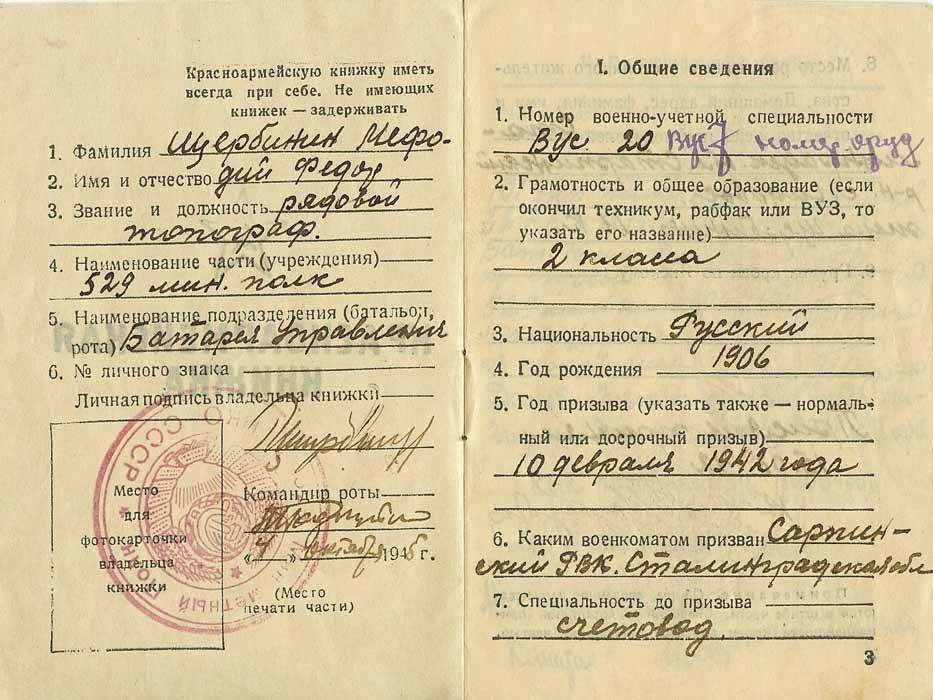 Красноармейскую книжку иметь
всегда при себе. Не имеющих
книжек — задерживать
1. Фамилия Щербинин Мефо-
2. Имя и отчество дий Федор
3. Звание и должность рядовой
топограф.
4. Наименование части (учреждения)
529 мин. полк
5. Наименование подразделения (батальон,
рота) Батарея Управления
6. № личного знака
Личная подпись владельца книжки
Место
для
фотокарточки
владельца
книжки
Командир роты
„4" октября 1945 г.
(Место
печати части)
СССР
I. Общие сведения
1. Номер военно-учетной специальности
Вус 20 Вус 7 номер оруд
2. Грамотность и общее образование (если
окончил техникум, рабфак или ВУЗ, то
указать его название)
2 класса
3. Национальность Русский
4. Год рождения 1906
5. Год призыва (указать также — нормаль-
ный или досрочный призыв)
10 февраля 1942 года
6. Каким военкоматом призван Сарпин-
ский РВК. Сталинградская обл
7. Специальность до призыва
счетовод.
3